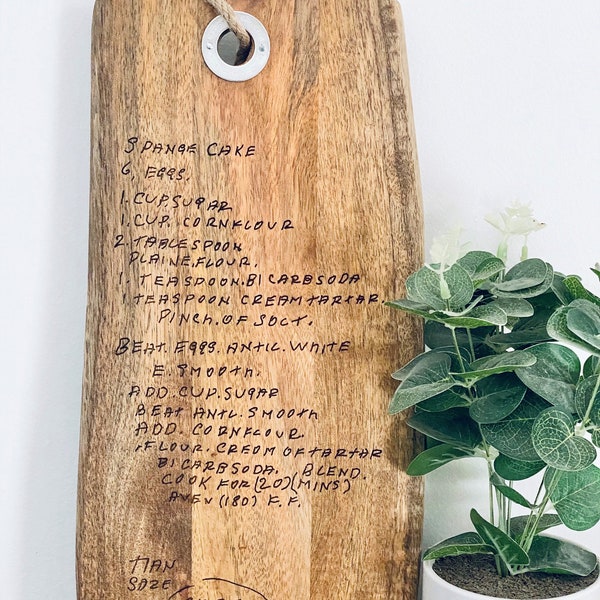 SPANGE CAKE
6, EGGS.
1. CUP.SUGAR
1. CUP. CORNFLOUR
2. TABLESPOON
PLAINE.FLOUR.
1. TEASPOON.BICARBSODA
1 TEASPOON CREAMTARTAR.
PINCH.OF SOLT.
BEAT. EGGS. ANTIL. WHITE
E. SMOOTH.
ADD. CUP.SUGAR
BEAT ANTL. SMOOTH
ADD. CORNFLOUR.
,FLOUR. CREOM OFTARTAR
BICARBSODA. BLEND.
COOK FOR(20)(MINS)
AVEN (180) F.F.
TIAN
SAZE